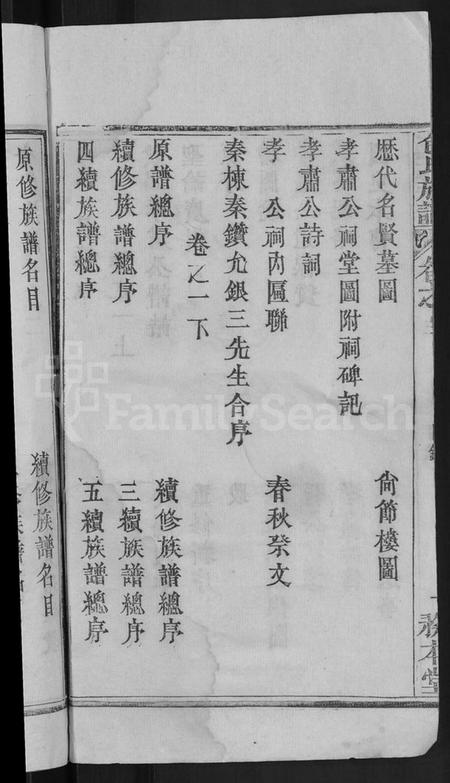 歷代名賢墓圖 尙節樓圖
孝肅公祠堂圖附祠碑記
孝肅公詩詞
孝 公祠內匾聯 春秋祭文
秦棟秦鑽允銀三先生合序
卷之一下
原譜總序 續修族譜總序
續修族譜總序 三續族譜總序
四續族譜總序 五續族譜總序
原修族譜名目 續修族譜名目
氏族譜
務本堂
FamilySearch